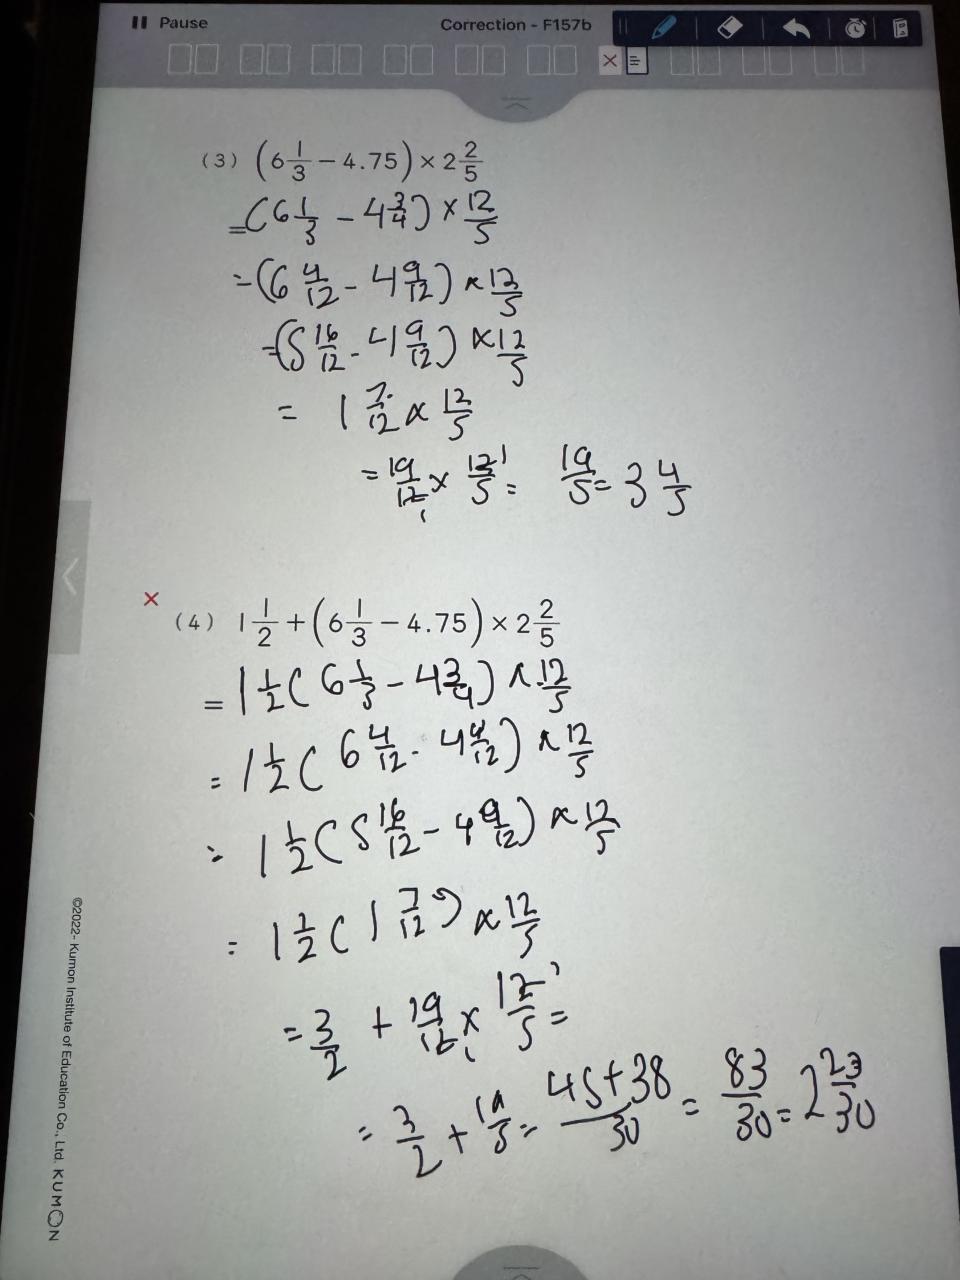 Pause
Correction - F157b
(3) (6 1/3 − 4.75) × 2 2/5
= (6 1/3 − 4 3/4) × 12/5
= (6 4/12 − 4 9/12) × 12/5
= (5 16/12 − 4 9/12) × 12/5
= 1 7/12 × 12/5
= 19/12 × 12/5 = 19/5 = 3 4/5
(4) 1 1/2 + (6 1/3 − 4.75) × 2 2/5
= 1 1/2 ( 6 1/3 − 4 3/4) × 12/5
= 1 1/2 ( 6 4/12 − 4 4/12) × 12/5
= 1 1/2 ( 5 16/12 − 4 9/12) × 12/5
= 1 1/2 ( 1 7/12) × 12/5
= 3/2 + 19/12 × 12/5 =
= 3/2 + 19/5 = 45+38/30 = 83/30 = 2 23/30
©2022- Kumon Institute of Education Co., Ltd. KUMON